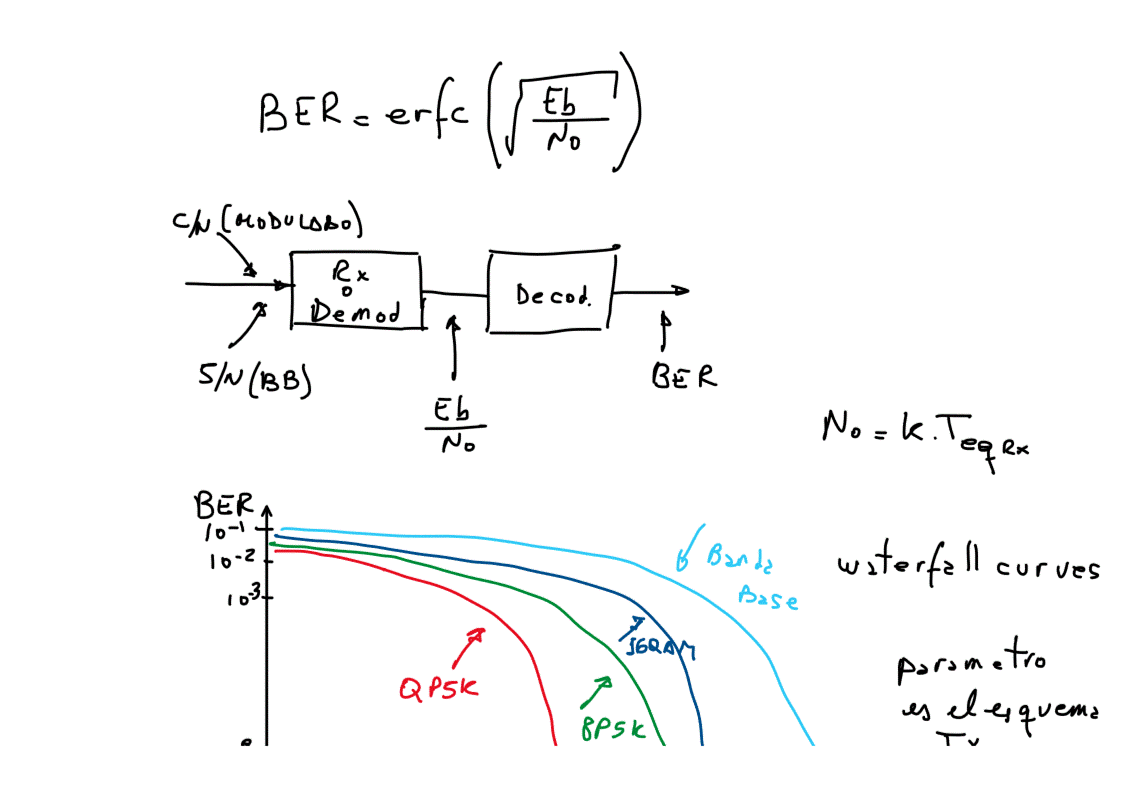 BER = erfc (√(Eb/No))
C/N (MODULADO)
Rx
o
Demod
Decod.
S/N (BB)
Eb/No
BER
No = k.Teq Rx
BER
10^-1
10^-2
10^3
Banda
Base
waterfall curves
16QAM
parametro
QPSK
es el esquema
BPSK
Tx